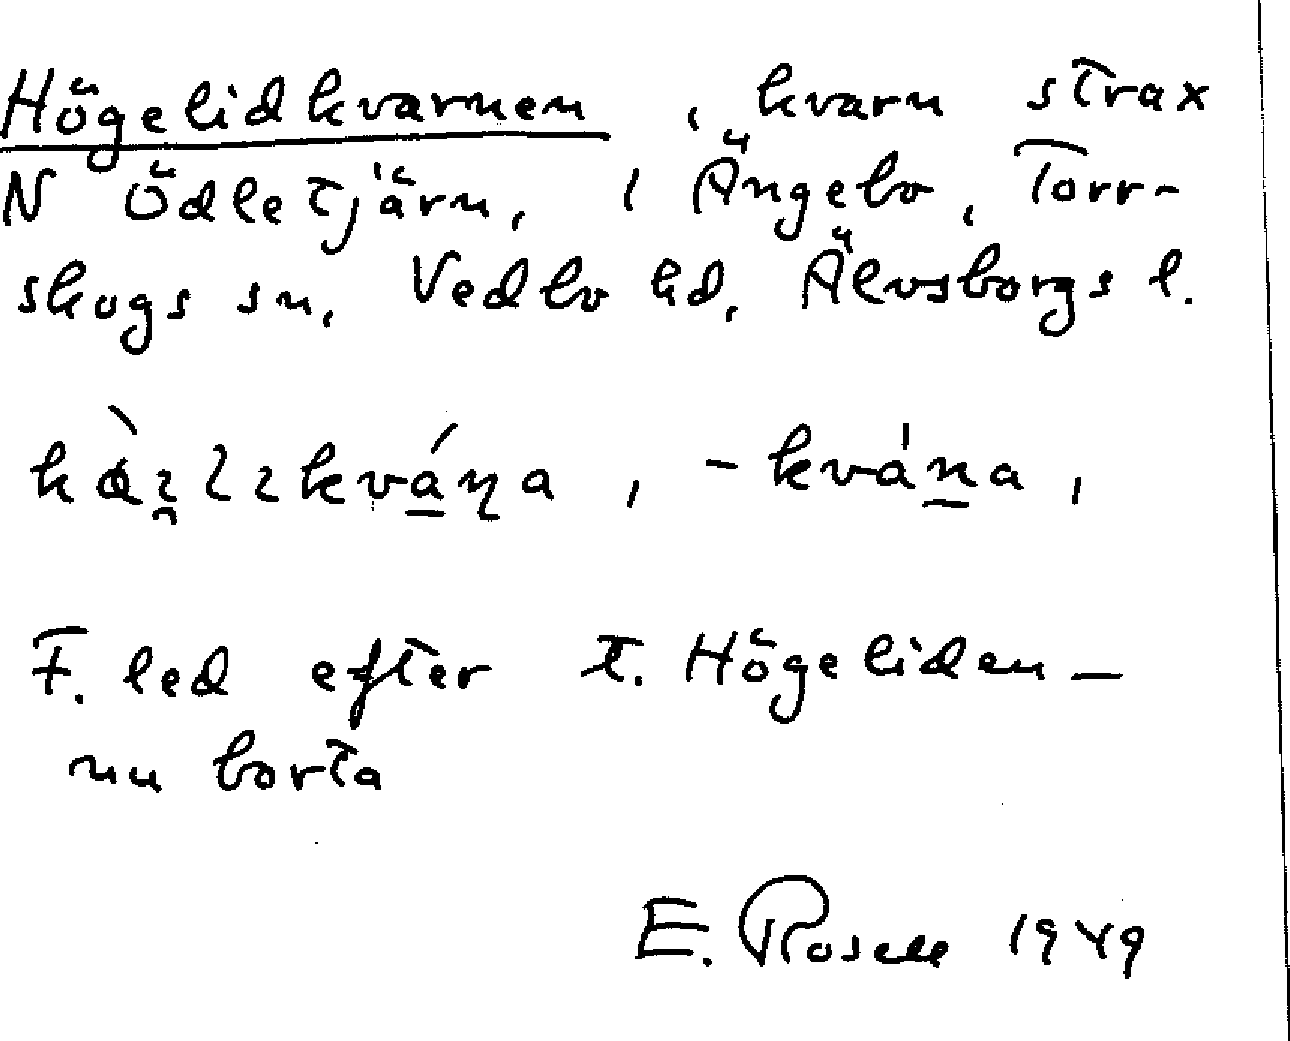 Högelidkvarnen, kvarn strax
N Ödletjärn, i Ängebo, Torr-
skogs sn, Vedbo hd, Älvsborgs l.
F. led efter t. Högeliden –
nu borta
E. Rosell 1949